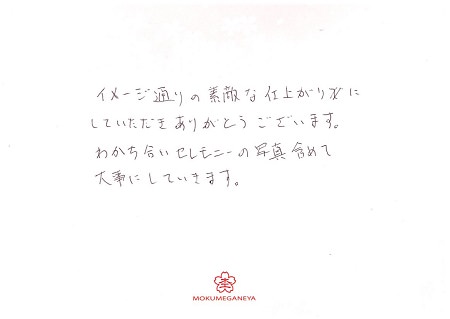 イメージ通りの素敵な仕上がりに
していただきありがとうございます。
わかち合いセレモニーの写真含めて
大事にしていきます。
MOKUMEGANEYA